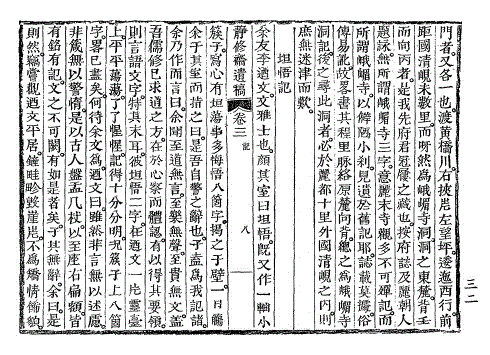 門者又各一也渡黃橋川右挾岸左望坪逶迤西行前
距國清峴未數里而呀然爲峨嵋寺洞洞之東麓背壬
而向丙者是我先府君冠屨之藏也按府誌及麗朝人
題詠無所謂峨嵋寺三字意麗末寺觀多不可殫記而
所謂峨嵋寺以僻隅小利見遺於舊記耶誌載莫俗
傳易訛故畧書其程里脉絡原麓向背總之爲峨嵋寺
洞記後之尋此洞者必於麗都十里外國清峴之內則
庶無迷津而歟
坦悟記
余友李遒文文雅士也顔其室曰坦悟旣又作一輞小
靜修齋遺稿 卷三 記 八
簇子寫心有坦蕩事多悔悟八箇字揭之于壁一日觴
余于其室而揩之曰是吾自警之辭也子盍爲我記諸
余乃作而言曰余聞至道無言至樂無聲至貴無文盖
吾儒修已求道之方在於心察而體認有以得其要領
則言語文字特其末耳彼坦悟二字遒文一片靈臺
上平平蕩蕩了了惺惺記得十分分明况簇子上八箇
字畧已盡矣何待余文爲遒文曰雖然非言無以述慮
非箴無以警惰是以古人盤盂几杖以至座右扁額皆
有銘有記文之不可無有如是者矣子其無辭余曰
則然竊嘗觀遒文平居鏟畦畛毀崖岸不爲矯情餙貌
三二